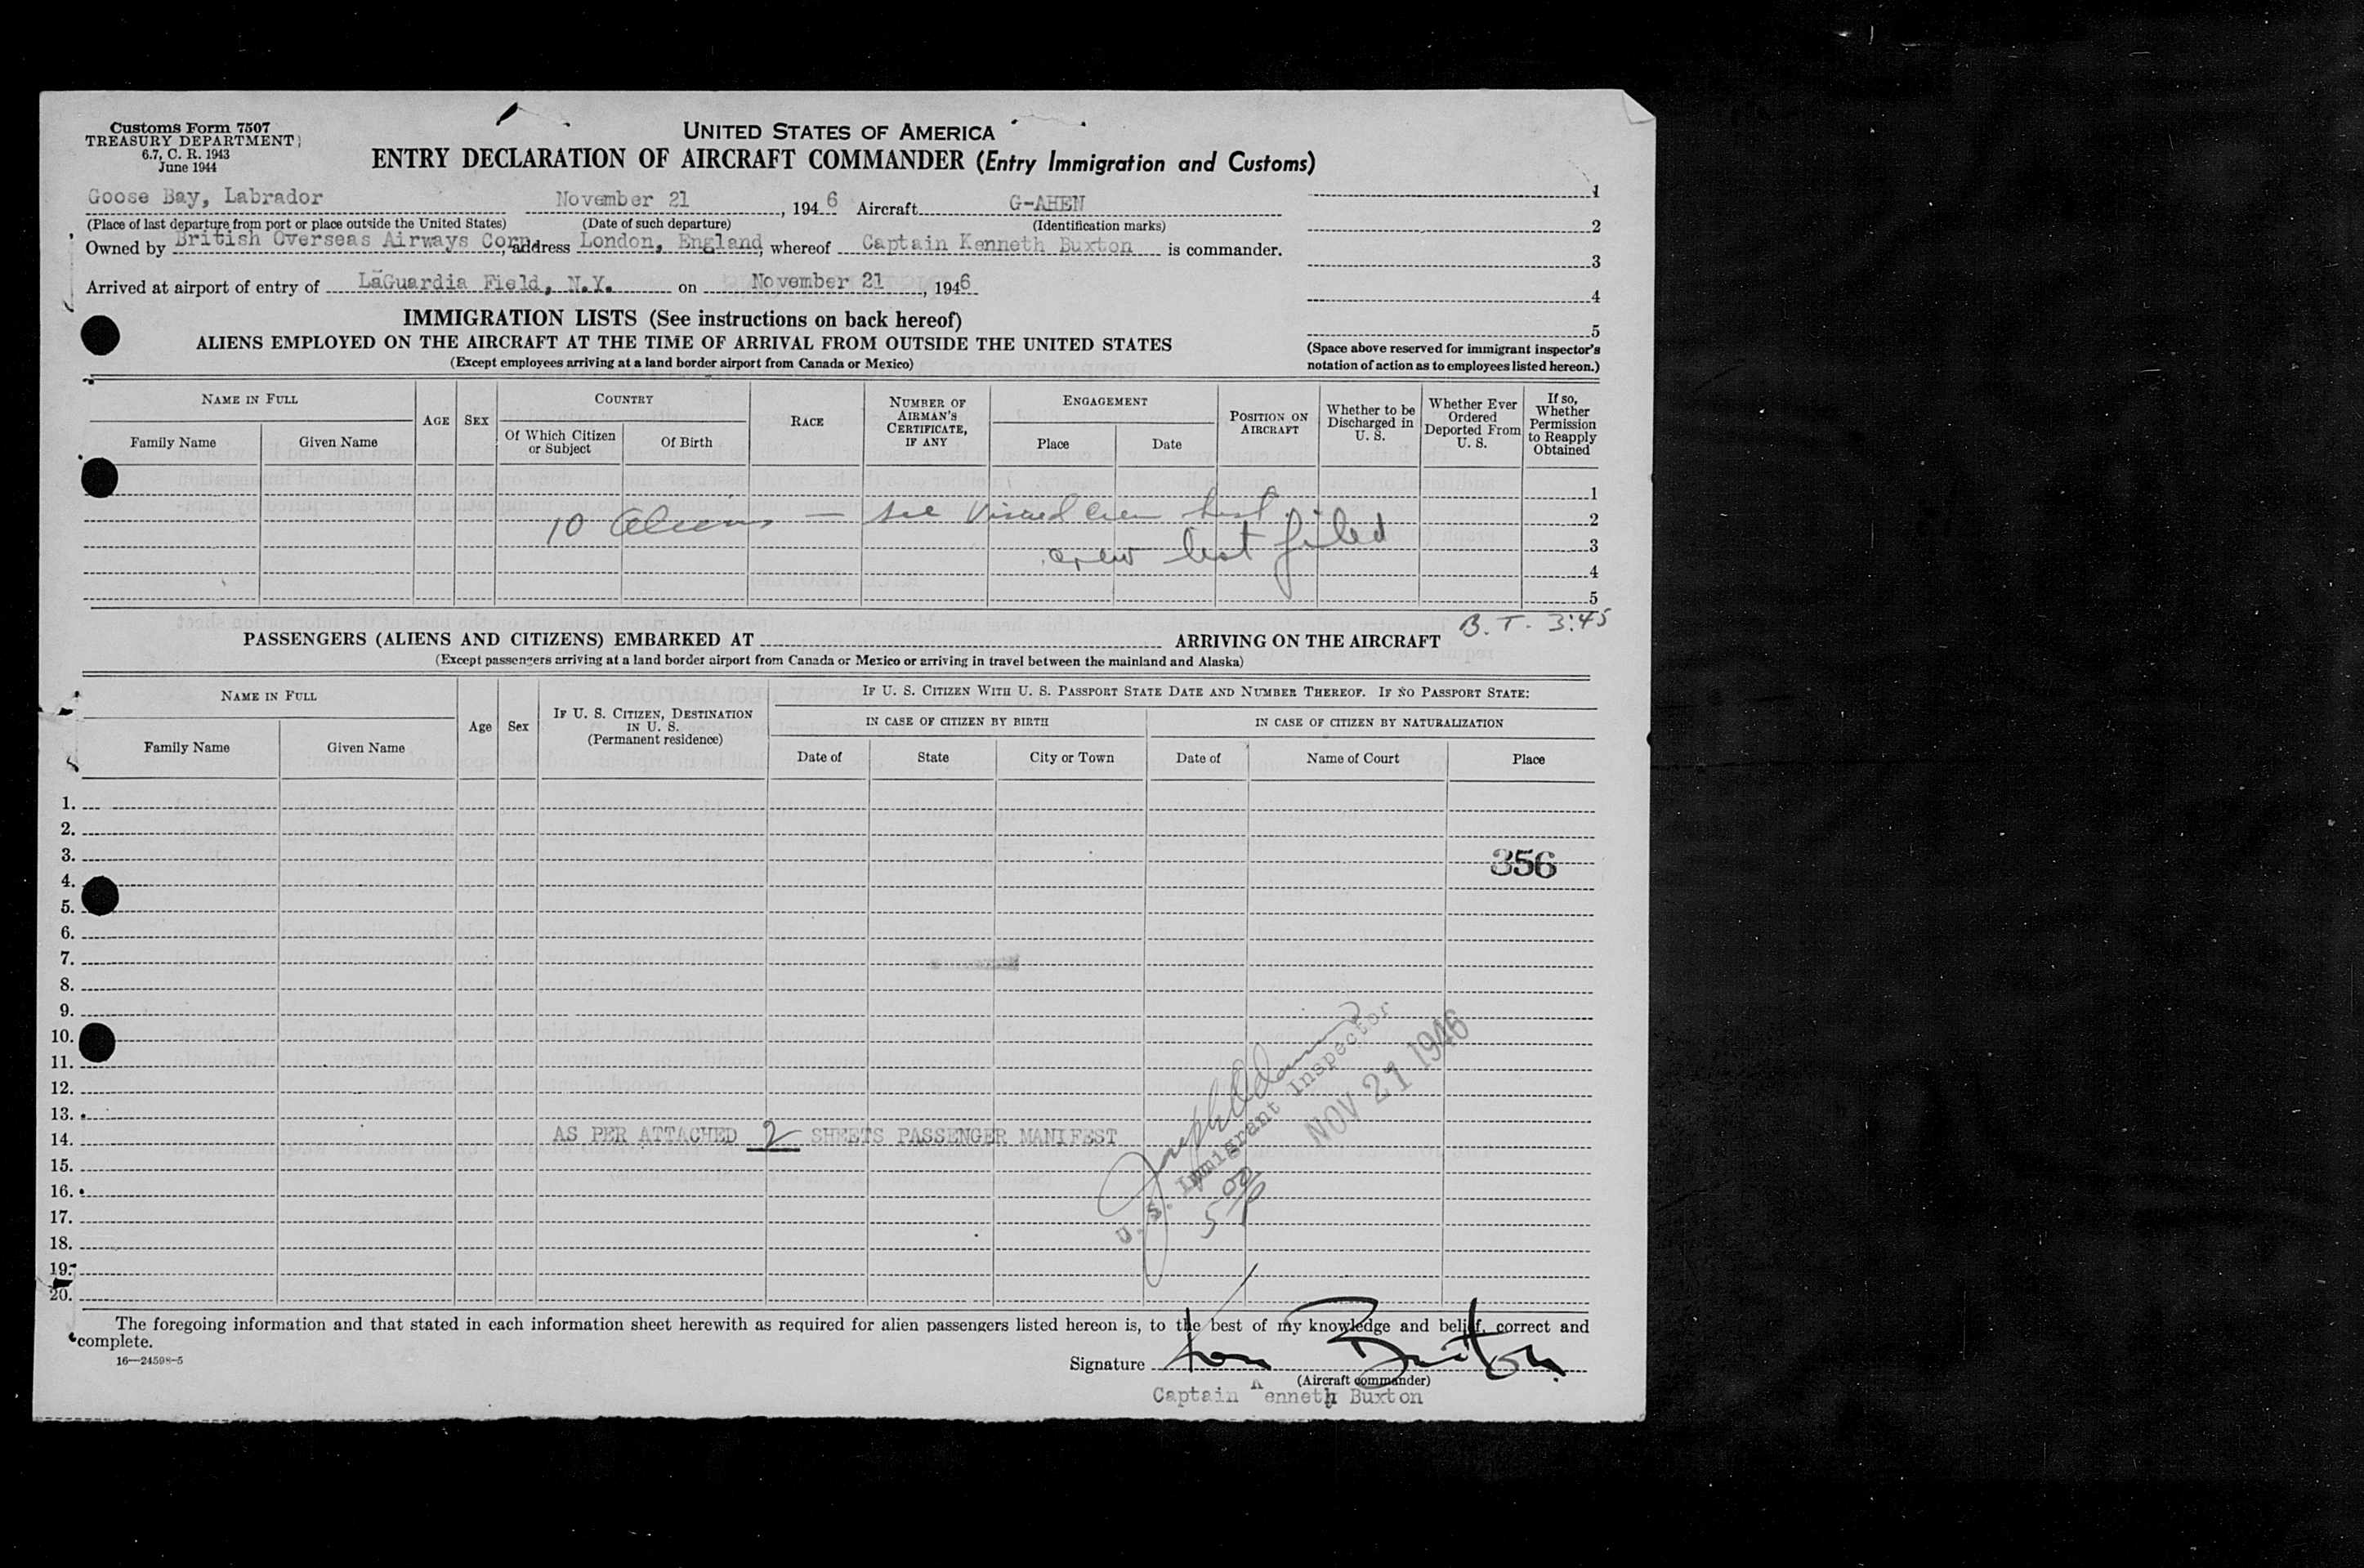 Customs Form 7507
TREASURY DEPARTMENT
6.7, C. R. 1943
June 1944
UNITED STATES OF AMERICA
ENTRY DECLARATION OF AIRCRAFT COMMANDER (Entry Immigration and Customs)
Goose Bay, Labrador November 21, 1946 Aircraft G-AHEN
(Place of last departure from port or place outside the United States) (Date of such departure) (Identification marks)
Owned by British Overseas Airways Corp., address London, England, whereof Captain Kenneth Buxton is commander.
Arrived at airport of entry of LaGuardia Field, N.Y. on November 21, 1946
1
2
3
4
5
(Space above reserved for immigrant inspector's
notation of action as to employees listed hereon.)
IMMIGRATION LISTS (See instructions on back hereof)
ALIENS EMPLOYED ON THE AIRCRAFT AT THE TIME OF ARRIVAL FROM OUTSIDE THE UNITED STATES
(Except employees arriving at a land border airport from Canada or Mexico)
NAME IN FULL
Family Name
Given Name
AGE
SEX
COUNTRY
Of Which Citizen
or Subject
Of Birth
RACE
NUMBER OF
AIRMAN'S
CERTIFICATE,
IF ANY
ENGAGEMENT
Place
Date
POSITION ON
AIRCRAFT
Whether to be
Discharged in
U. S.
Whether Ever
Ordered
Deported From
U. S.
If so,
Whether
Permission
to Reapply
Obtained
1
10 Aliens — see visaed crew list 2
crew list filed 3
4
5
B. T. 3:45
PASSENGERS (ALIENS AND CITIZENS) EMBARKED AT ARRIVING ON THE AIRCRAFT
(Except passengers arriving at a land border airport from Canada or Mexico or arriving in travel between the mainland and Alaska)
NAME IN FULL
Family Name
Given Name
Age
Sex
IF U. S. CITIZEN, DESTINATION
IN U. S.
(Permanent residence)
IF U. S. CITIZEN WITH U. S. PASSPORT STATE DATE AND NUMBER THEREOF. IF NO PASSPORT STATE:
IN CASE OF CITIZEN BY BIRTH
Date of
State
City or Town
IN CASE OF CITIZEN BY NATURALIZATION
Date of
Name of Court
Place
1.
2.
3. 356
4.
5.
6.
7.
8.
9.
10.
11.
12.
13.
14. AS PER ATTACHED 2 SHEETS PASSENGER MANIFEST
15.
16.
17.
18.
19.
20.
U. S. Immigrant Inspector
NOV 21 1946
The foregoing information and that stated in each information sheet herewith as required for alien passengers listed hereon is, to the best of my knowledge and belief, correct and
complete.
16—24598-5
Signature Ken Buxton
(Aircraft commander)
Captain Kenneth Buxton